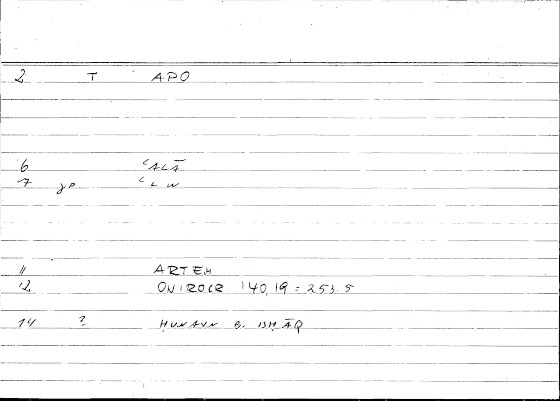 2 T APO
6 ʿALĀ
7 JP ʿLW
11 ARTEM
12 ONIROCR 140,19 = 253.5
14 ? ḤUNAYN B. ISḤĀQ